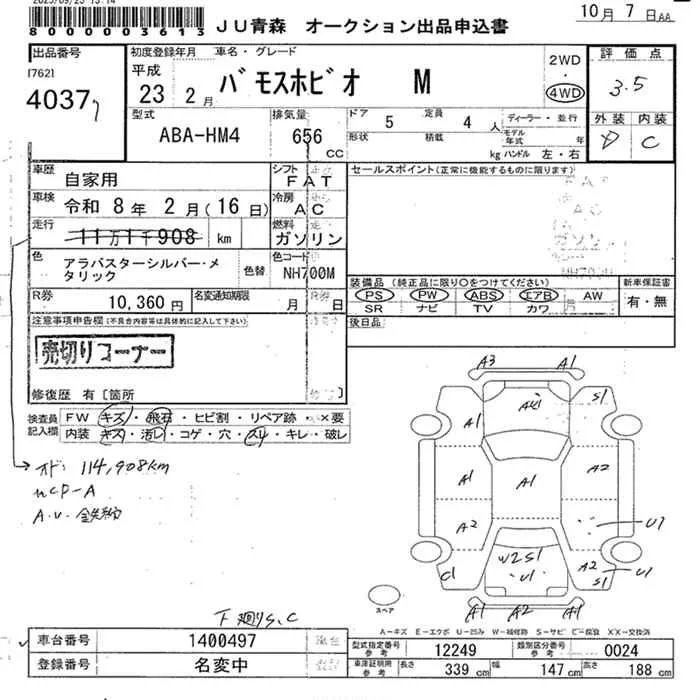 2025/09/25 13:14
8000003613
JU青森 オークション出品申込書
10月 7日AA
出品番号
[762]
4037
初度登録年月
平成
23 2月
車名・グレード
バモスホビオ M
2WD
・
4WD
評価点
3.5
外装 内装
D C
型式
ABA-HM4
排気量
656
CC
ドア 5 定員 4 人
形状 積載 kg
ディーラー・並行
モデル年式 年
ハンドル 左・右
車歴 自家用
シフト FAT
車検 令和 8年 2月(16日)
冷房 AC
走行 11万1千908 km
燃料 ガソリン
色 アラバスターシルバー・メタリック
色替
色コード NH700M
R券 10,360円
名変通知期限 月 日
セールスポイント(正常に機能するものに限ります)
装備品 (純正品に限り○をつけてください)
PS PW ABS エアB AW
SR ナビ TV カワ
新車保証書
有・無
後日品
注意事項申告欄(不具合内容等は具体的に記入して下さい)
売切りコーナー
修復歴 有[箇所 ]
検査員記入欄
FW キズ・飛石・ヒビ割・リペア跡・×要
内装 キズ・汚レ・コゲ・穴・スレ・キレ・破レ
オド: 114,908km
A3 A1
A1 S1
A1 A1 A2
A2 U1
W2 S1
U1
C1 A2 S1 U1
A1 A2 A1
スペア
下廻りS.C
A-キズ E-エクボ U-凹み W-補修跡 S-サビ C-腐食 XX-交換済
車台番号 1400497
登録番号 名変中
型式指定番号 参考 12249
類別区分番号 参考 0024
車庫証明用 参考 長さ 339cm 幅 147cm 高さ 188cm